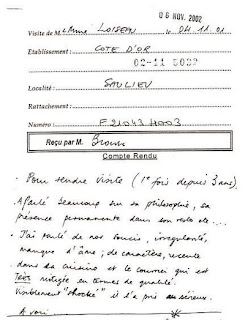 06 NOV. 2002
Visite de M. et Mme LOISEAU le 04.11.02
Etablissement : COTE D'OR
02-11 5002
Localité : SAULIEU
Rattachement :
Numéro : F21043H003
Reçu par M. Brown
Compte Rendu
- Pour rendre visite (1ère fois depuis 3 ans)
A parlé beaucoup sur sa philosophie, sa
présence permanente dans son resto etc...
- J'ai parlé de nos soucis, irrégularité,
manque d'âme, de caractère, récente
dans sa cuisine et le courrier qui est
TRES mitigé en termes de qualité.
Visiblement "choqué" il l'a pris au sérieux.
A voir...